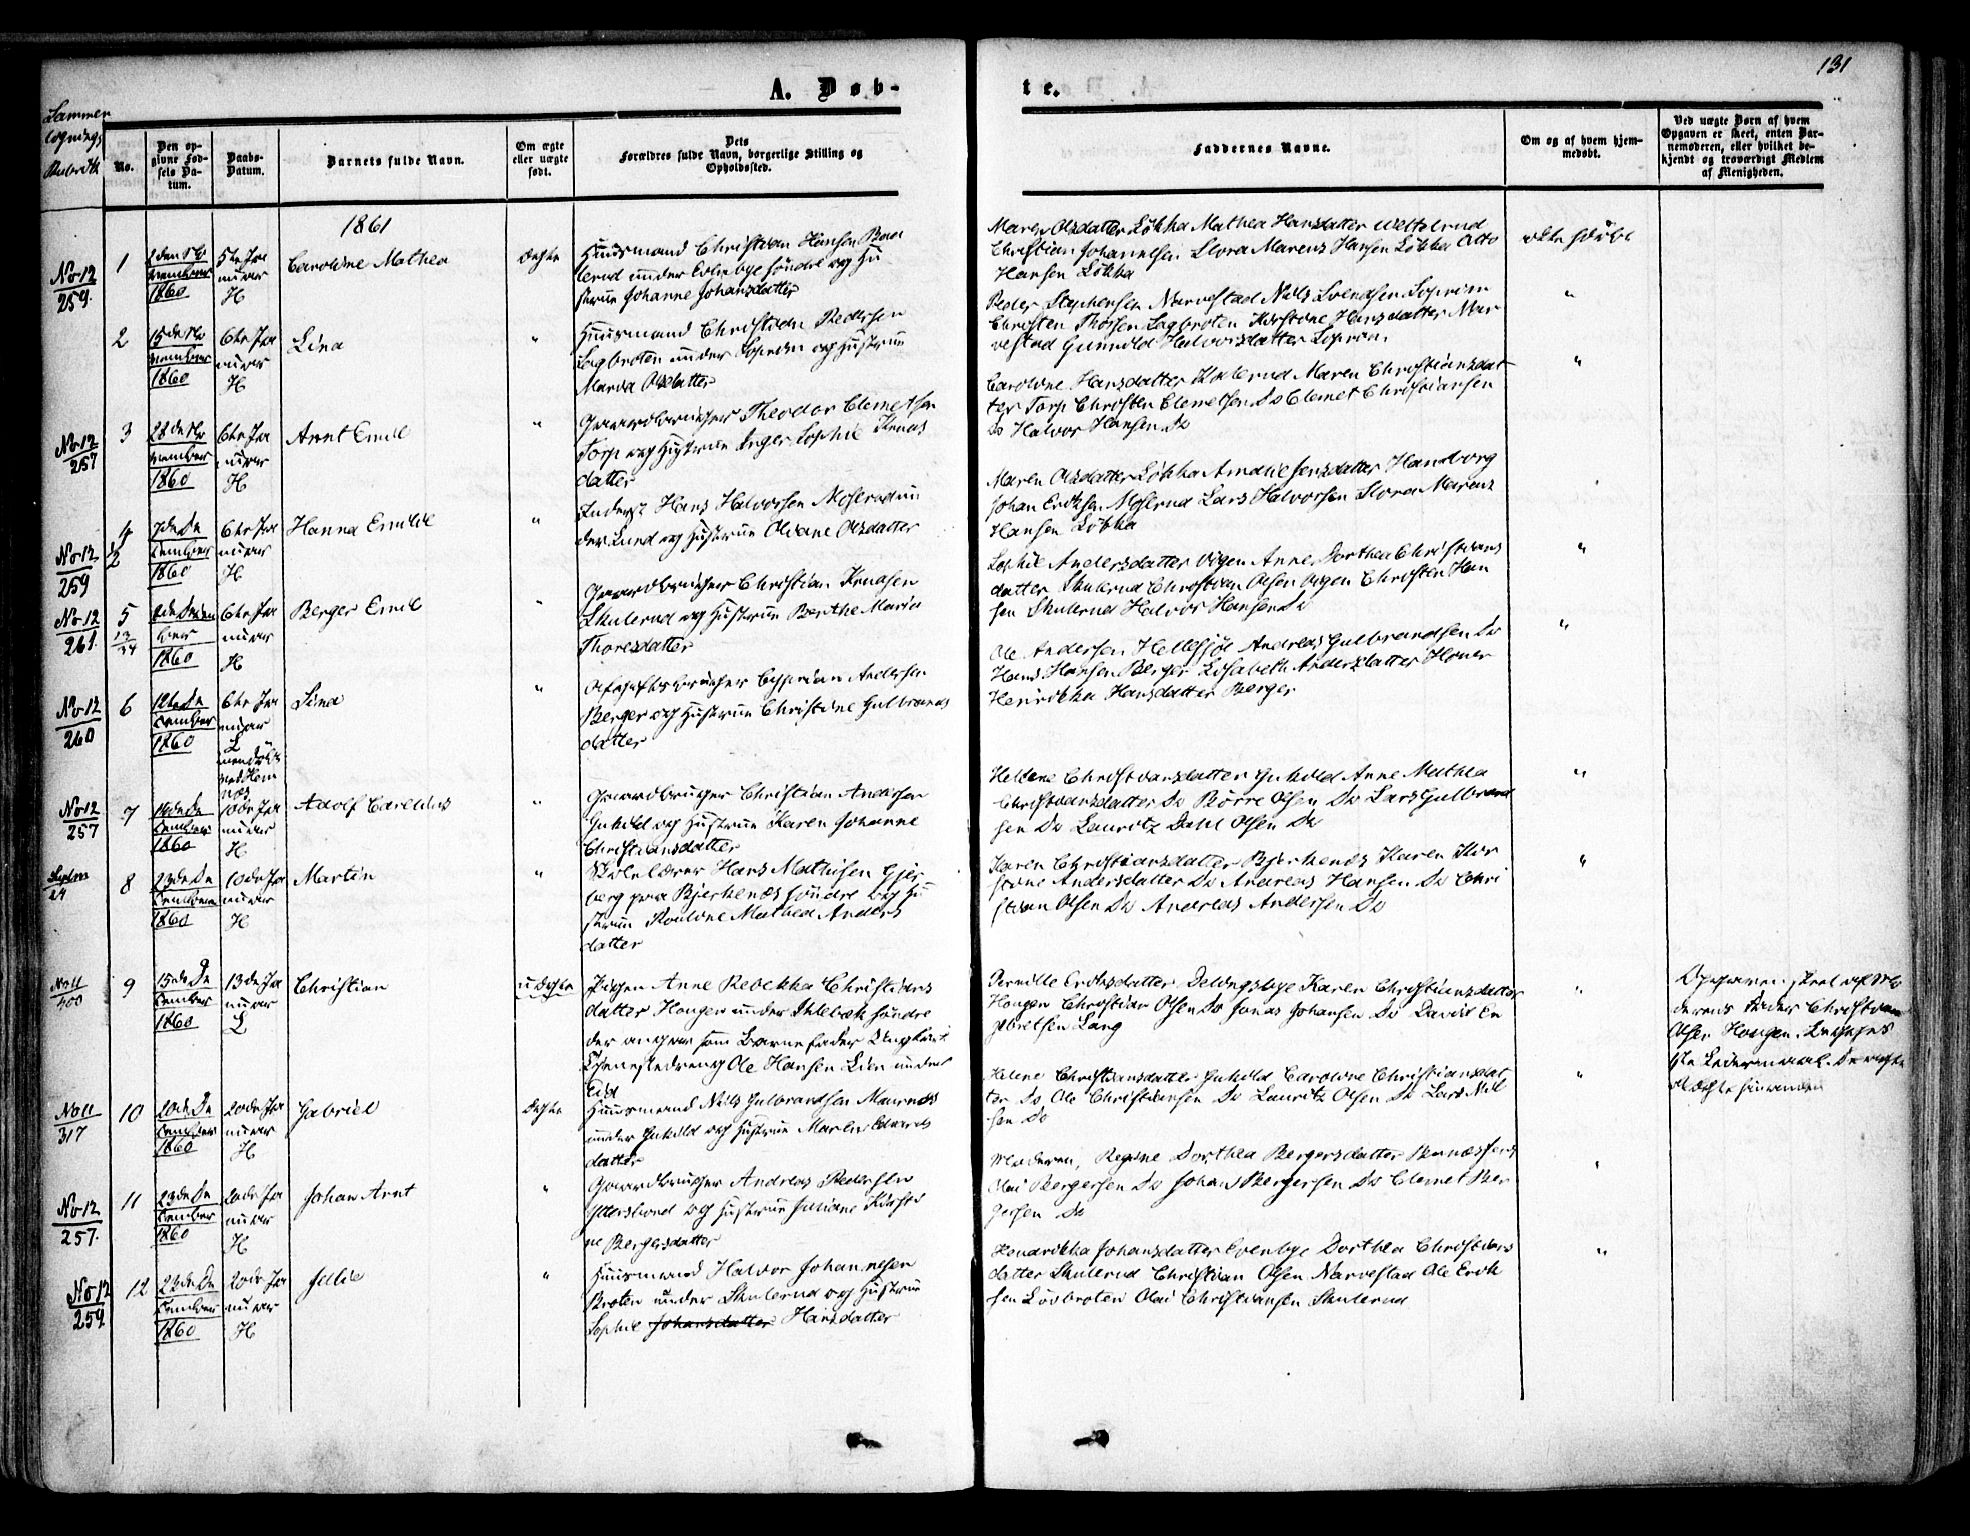 131
A. Døb-
te.
Sammen
lignings
Rubrik
No.
Den op-
givne Fød-
sels Da-
tum.
Daabs-
Datum.
Barnets fulde Navn.
Om ægte
eller uægte
født.
Dets
Forældres fulde Navn, borgerlige Stilling og
Opholdssted.
Faddernes Navne.
Om og af hvem hjem-
medøbt.
Ved uægte Børn af hvem
Opgaven er skeet, enten Bar-
nemoderen, eller hvilket be-
kjendt og troværdigt Medlem
af Menigheden.
1861
No 12
259.
1
2den No
vember
1860
5te Ja
nuar
H
Caroline Mathea
Ægte
Huusmand Christian Hansen
lerud under søndre og Hu
strue Johanne Johansdatter
Maren Olsdatter Løkka Mathea Hansdatter
Christian Johannesen Slora Marens Hansen Løkka Otto
Hansen Løkka
ikke hjdøbt
2
15de No
vember
1860
6te Ja
nuar
H
Lina
"
Huusmand Christian Pedersen
Lagbroten under Sopeim og Hustrue
Maria Olsdatter
Peder Stephensen Narvestad Niels Svendsen Sopeim
Christen Thosen Lagbroten Kirstine Hansdatter Nar
vestad Gunnild Halvorsdatter Sopeim
"
No 12
257
3
28de No
vember
1860
6te Ja
nuar
H
Arnt Emil
"
Gaardbruger Theodor Clemetsen
Torp og Hustrue Inger Sophie Knuds
datter
Caroline Hansdatter Skulerud Maren Christiansdat
ter Torp Christen Clemetsen Do Clemet Christiansen
Do Halvor Hansen Do
"
No 12
259
4
7de De
cember
1860
6te Ja
nuar
H
Hanna Emilie
"
Inderst Hans Halvorsen Moserud un
der Lund og Hustrue Oliane Olsdatter
Maren Olsdatter Løkka Amalie Jensdatter Handborg
Johan Eriksen Moserud Lars Halvorsen Slora Marens
Hansen Løkka
"
No 12
261
5
1860
6te Ja
nuar
H
Berger Emil
"
Gaardbruger Christian Knudsen
Skulerud og Hustrue Berthe Maria
Thoresdatter
Sophie Andersdatter Vigen Anne Dorthea Christians
datter Skulerud Christian Olsen Vigen Christen Han
sen Skulerud Halvor Hansen Do
"
No 12
260
6
12te De
cember
1860
6te Ja
nuar
L
Lina
"
Berger og Hustrue Christine Gulbrands
datter
Ole Andersen Hellesjøe Andreas Gulbrandsen Do
Hans Hansen Berger Elisabeth Andersdatter
Henrikka Hansdatter Berger
"
No 12
257
7
16de De
cember
1860
10de Ja
nuar
H
Adolf Carelius
"
Gaardbruger Christian Andersen
Guhild og Hustrue Karen Johanne
Christiansdatter
Hellene Christiansdatter Guhild Anne Mathea
Christiansdatter Do Børre Olsen Do Lars Gulbrand
sen Do Lauritz Dahl Olsen Do
"
24
8
23de De
cember
1860
10de Ja
nuar
H
Martin
"
Skolelærer Hans Mathisen Gjer
berg paa Bjerkenæs søndre og Hu
strue Pouline Mathea Anders
datter
Karen Christiansdatter Bjerkenæs Karen Kir
stine Andersdatter Do Andreas Hansen Do Chri
stian Olsen Do Andreas Andersen Do
"
No 11
400
9
15de De
cember
1860
13de Ja
nuar
L
Christian
uægte
Pigen Anne Rebekka Christians
datter Hougen under søndre
der angav som Barnefader Ungkarl
Tjenestedreng Ole Hansen Lien under
Eid
Pernille Eriksdatter Karen Christiansdatter
Hougen Christian Olsen Do Jonas Johansen Do David En
gebretsen Lang
"
Opgaven skeet af Mo
derens Fader Christian
Olsen Hougen. Begges
1ste Leiermaal. De agte
at ægte hinanden
No 11
317
10
20de De
cember
1860
20de Ja
nuar
H
Gabriel
Ægte
Huusmand Niels Gulbrandsen
under Guhild og Hustrue Maren
datter
Helene Christiansdatter Guhild Caroline Christiansdat
ter Do Ole Christiansen Do Lauritz Olsen Do Lars Niel
sen Do
"
No 12
257.
11
23de De
cember
1860
20de Ja
nuar
H
Johan Arnt
"
Gaardbruger Andreas Pedersen
og Hustrue Juliane Kirsti
ne Bergersdatter
Moderen, Regine Dorthea Bergersdatter
Olai Bergersen Do Johan Bergersen Do Clemet Ber
gersen Do
"
No 12
259
12
23de De
cember
1860
20de Ja
nuar
H
Julie
"
Huusmand Halvor Johannesen
Broten under Skulerud og Hustrue
Sophie Johansdatter Hansdatter
Hendrikka Johansdatter Evenbye Dorthea Christians
datter Skulerud Christian Olsen Narvestad Ole Erik
sen Løvbroten Olai Christiansen Skulerud
"